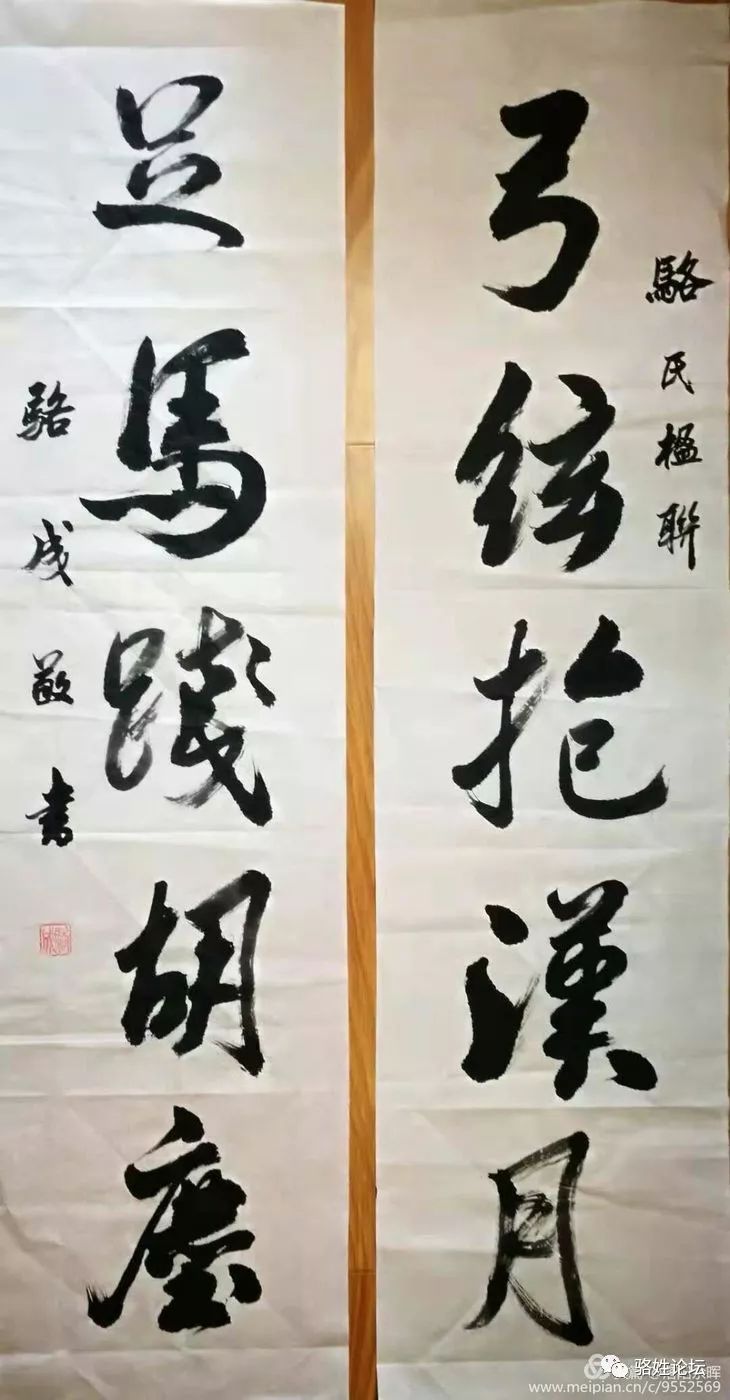 駱氏楹聯
弓弦抱漢月
足馬踐胡塵
駱成敬書
骆姓论坛
www.meipian.cn/c/9552569